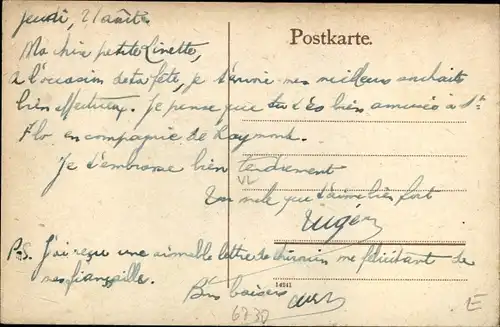 Jeudi, 21 août.
Postkarte.
Ma chère petite Linette,
à l'occasion de ta fête, je t'envoie mes meilleurs souhaits
bien affectueux. Je pense que tu t'es bien amusée à St
Flo en compagnie de Raymond.
Je t'embrasse bien tendrement
VL
Ton oncle qui t'aime bien fort
Eugène
P.S. J'ai reçu une aimable lettre de me félicitant de
mes fiançailles.
Bons baisers
14841
6730
E